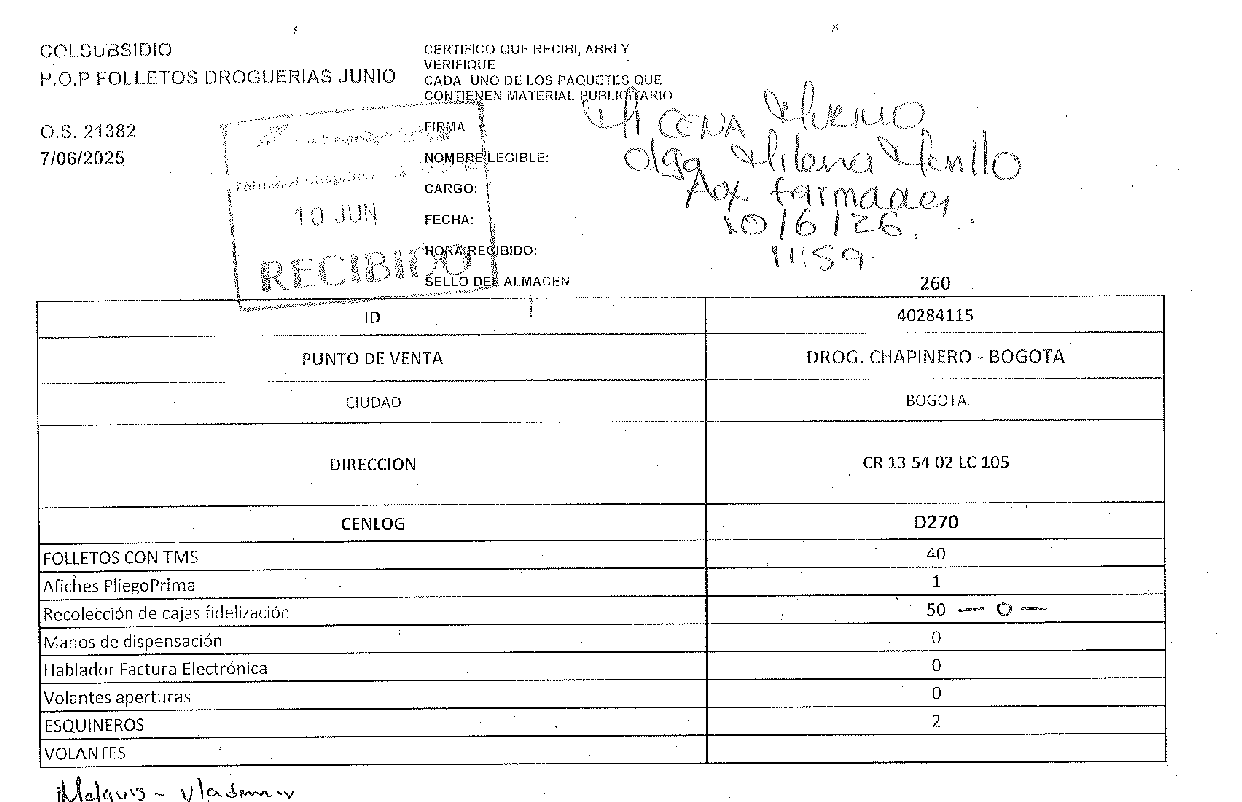 COLSUBSIDIO
P.O.P FOLLETOS DROGUERIAS JUNIO
O.S. 21382
7/06/2025
CERTIFICO QUE RECIBI, ABRI Y
VERIFIQUE
CADA UNO DE LOS PAQUETES QUE
CONTIENEN MATERIAL PUBLICITARIO
FIRMA
NOMBRE LEGIBLE:
Olga Milena
CARGO:
Aux
FECHA:
10/6/26.
HORA RECIBIDO:
11:59.
SELLO DEL ALMACEN
10 JUN
RECIBIDO
260
ID 40284115
PUNTO DE VENTA DROG. CHAPINERO - BOGOTA
CIUDAD BOGOTA
DIRECCION CR 13 54 02 LC 105
CENLOG D270
FOLLETOS CON TMS 40
Afiches PliegoPrima 1
Recolección de cajas fidelización 50 — 0 —
Manos de dispensación 0
Hablador Factura Electrónica 0
Volantes aperturas 0
ESQUINEROS 2
VOLANTES